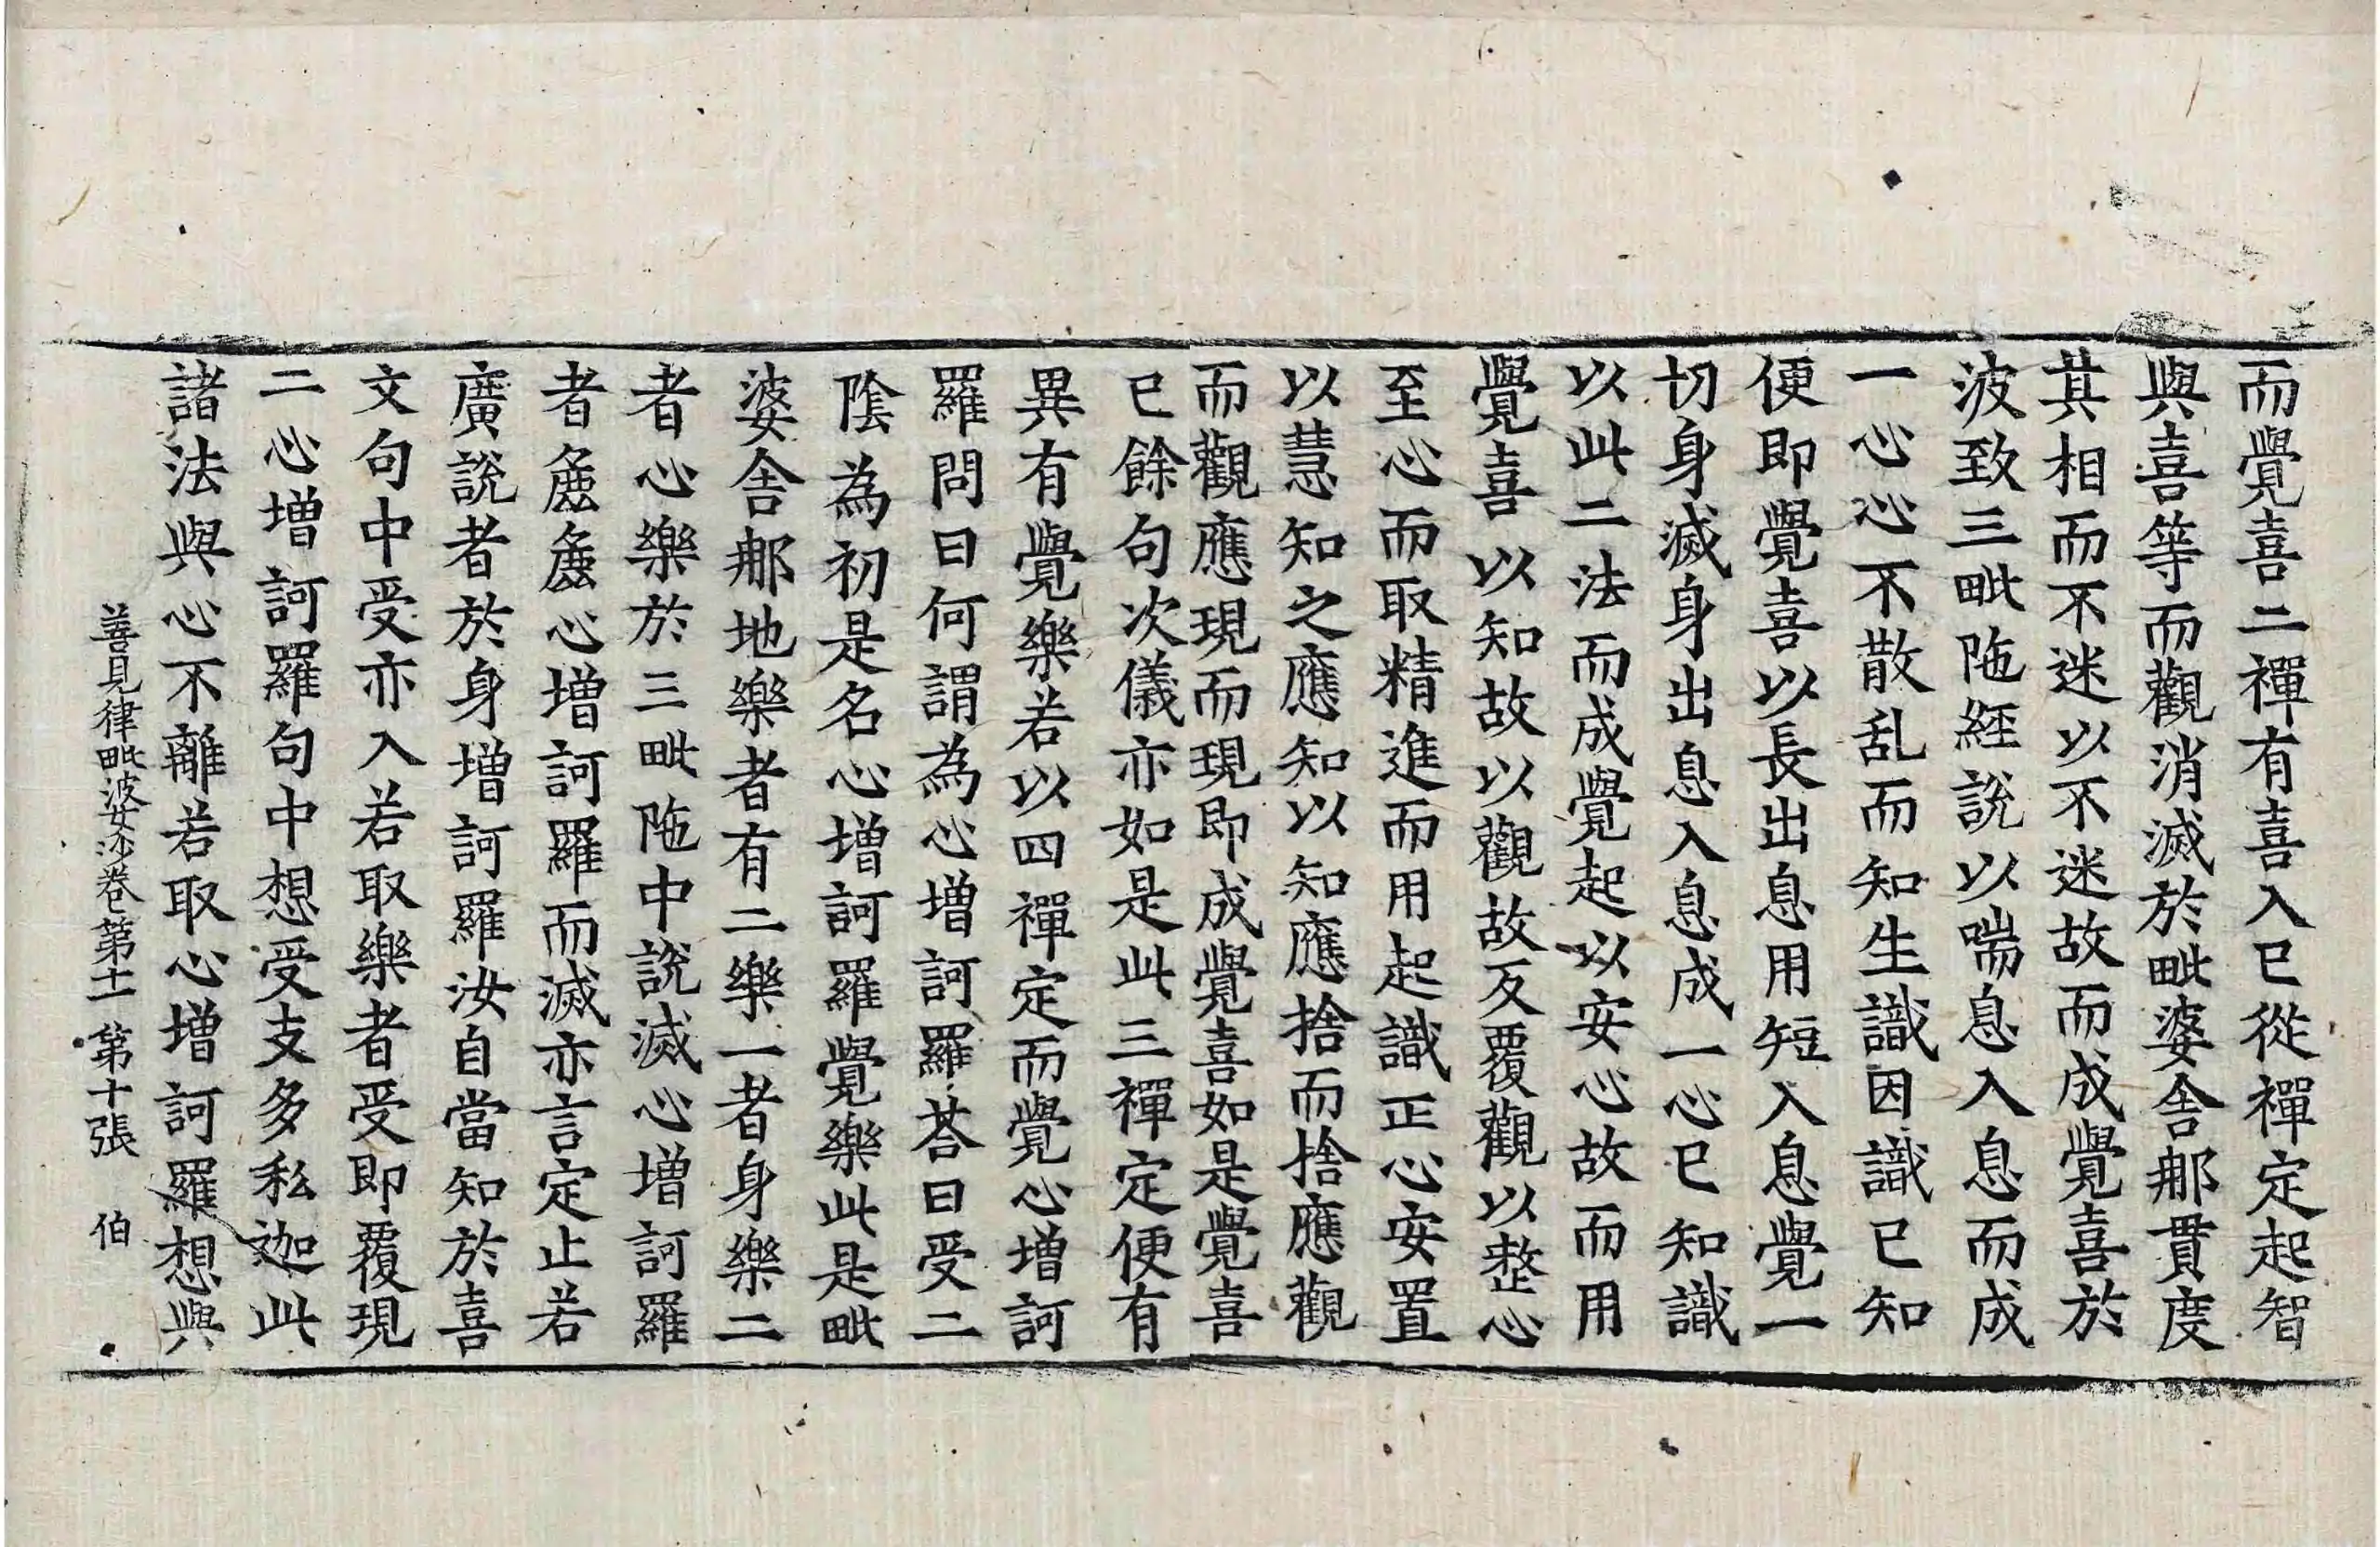 而覺喜二禪有喜入已從禪定起智
與喜等而觀消滅於毗婆舍𨚗貫度
其相而不迷以不迷故而成覺喜於
波致三毗陁經說以喘息入息而成
一心心不散乱而知生識因識已知
便即覺喜以長出息用短入息覺一
切身滅身出息入息成一心已知識
以此二法而成覺起以安心故而用
覺喜以知故以觀故反覆觀以整心
至心而取精進而用起識正心安置
以慧知之應知以知應捨而捨應觀
而觀應現而現即成覺喜如是覺喜
已餘句次儀亦如是此三禪定便有
異有覺樂若以四禪定而覺心增訶
羅問曰何謂為心增訶羅荅曰受二
陰為初是名心增訶羅覺樂此是毗
婆舍𨚗地樂者有二樂一者身樂二
者心樂於三毗陁中說滅心增訶羅
者麁麁心增訶羅而滅亦言定止若
廣說者於身增訶羅汝自當知於喜
文句中受亦入若取樂者受即覆現
二心增訶羅句中想受支多私迦此
諸法與心不離若取心增訶羅想與
善見律毗婆沙卷第十一 第十張 伯